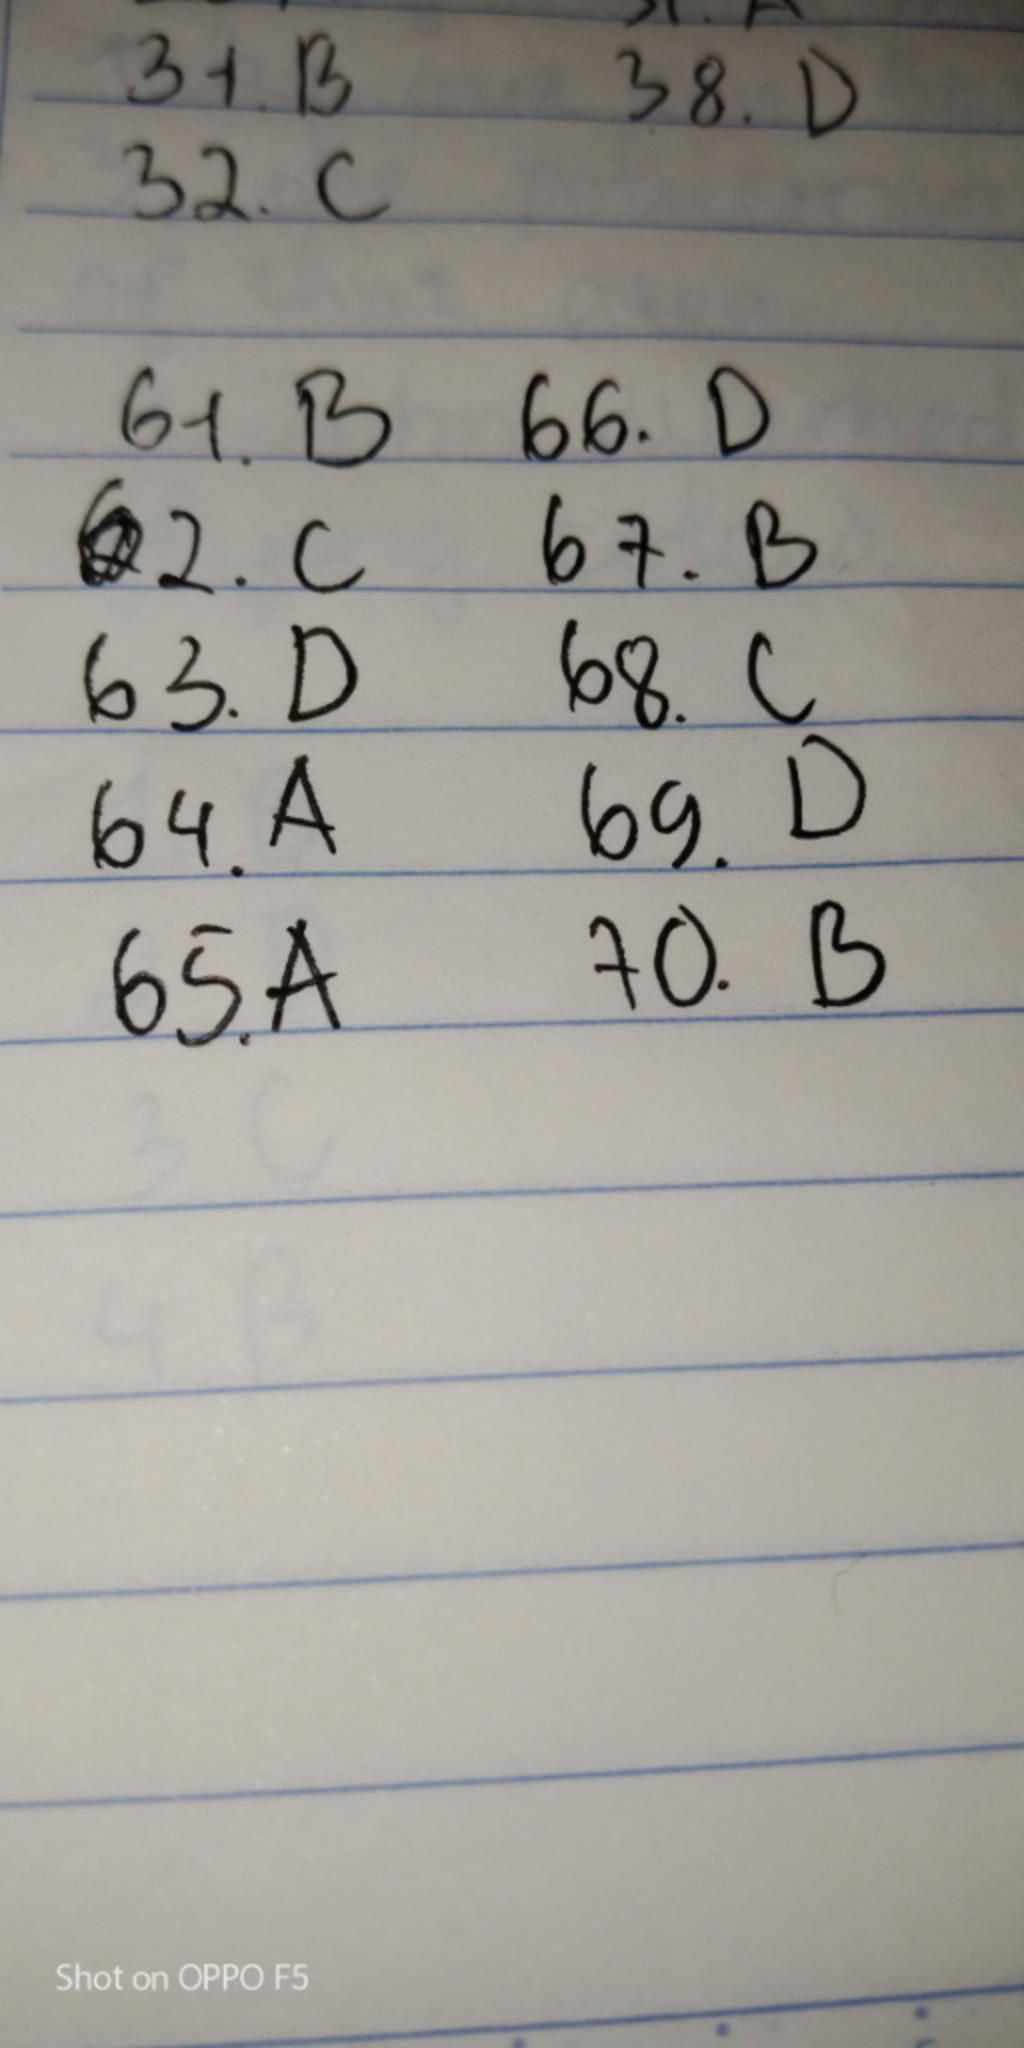 31. B 38. D
32. C
61. B 66. D
62. C 67. B
63. D 68. C
64. A 69. D
65. A 70. B
3 C
4 B
Shot on OPPO F5